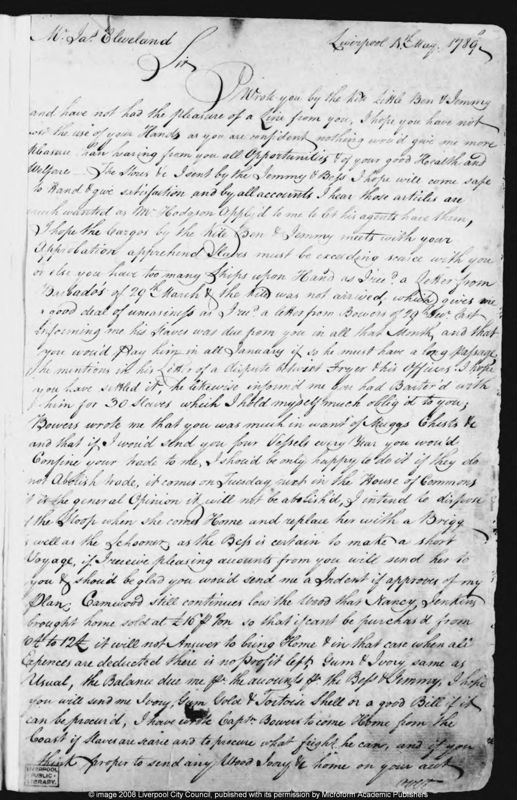 Mr. Jas. Cleveland
Liverpool 4th May. 1789
Sir
I Wrote you by the kite Little Ben & Jemmy
and have not had the pleasure of a Line from you, I hope you have not
the use of your Hands as you are confident nothing wou'd give me more
pleasure than hearing from you all Opportunities & of your good Health and
Welfare – The Stores &c I sent by the Jemmy & Bess I hope will come safe
to Hand & give satisfaction and by all accounts I hear those articles are
much wanted as Mr. Hodgson applied to me to let his agents have them,
I hope the Cargos by the kite Ben & Jemmy meets with your
Approbation apprehend Slaves must be exceeding scarce with you
or else you have too many Ships upon Hand as I rec'd. a Letter from
Barbados of 29th March & the kite was not arrived, which gives me
a good deal of uneasiness as I rec'd. a letter from Bowers of 29th
Informing me his Slaves was due from you in all that Month, and that
you wou'd Pay him in all January if so he must have a long passage,
he mentions in his Letter of a dispute betwixt Fryer & his Officers I hope
you have settled it, he likewise inform'd me you had Barter'd with
him for 30 Slaves which I hold myself much oblig'd to you,
Bowers wrote me that you was much in want of Muggs Chests &c
and that if I wou'd send you four Vessels every Year you wou'd
Confine your trade to me, I shou'd be only happy to do it if they do
not Abolish trade, it comes on Tuesday next in the House of Commons
it is the general Opinion it will not be abolish'd, I intend to dispose
of the Sloop when she comes Home and replace her with a Brigg
as well as the Schooner, as the Bess is certain to make a short
Voyage, if I receive pleasing accounts from you will send her to
you & shou'd be glad you wou'd send me a Indent if approve of my
Plan, Camwood still continues low the Wood that Nancy Jenkins
brought home sold at £16 p ton so that if cant be purchas'd from
to 12£ it will not Answer to bring Home & in that case when all
Expences are deducted there is no profit left Gum & Ivory same as
Usual, the Balance due me pr the accounts pr the Bess & Jemmy, I hope
you will send me Ivory, Gum Gold & Tortoise Shell or a good Bill if it
can be procur'd, I have wrote Captn Bowers to come Home from the
Coast if Slaves are scarce and to procure what freight he can, and if you
think proper to send any Wood Ivory &c home on your acct
LIVERPOOL
PUBLIC
LIBRARY
© image 2008 Liverpool City Council, published with its permission by Microform Academic Publishers